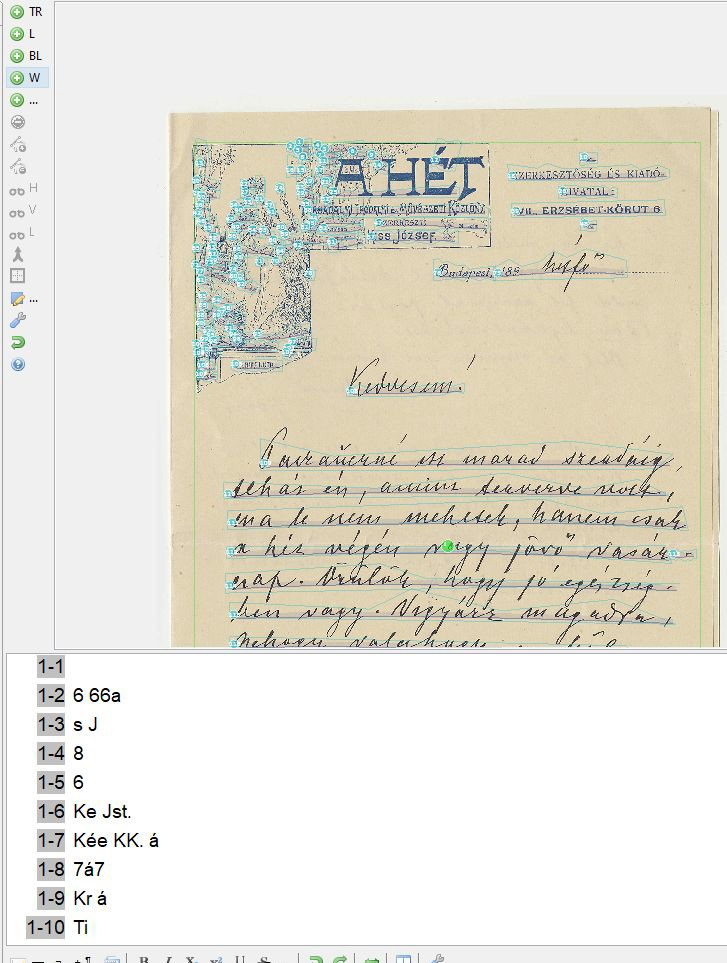 TR
L
BL
W
...
H
V
L
...
A HÉT
TÁRSADALMI IRODALMI és MŰVÉSZETI KÖZLÖNY
SZERKESZTI
KISS JÓZSEF
SZERKESZTŐSÉG ÉS KIADÓ-
HIVATAL:
VII., ERZSÉBET-KÖRUT 6
Budapest, '89 hétfő
Kedvesem!
itt marad szerdáig,
tehát én, amint tervezve volt,
ma le nem mehetek, hanem csak
a hét végén vagy jövő vasár-
nap. Örülök, hogy jó egészség-
ben vagy. Vigyázz magadra,
nehogy valahogy
1-1
1-2 6 66a
1-3 s J
1-4 8
1-5 6
1-6 Ke Jst.
1-7 Kée KK. á
1-8 7á7
1-9 Kr á
1-10 Ti